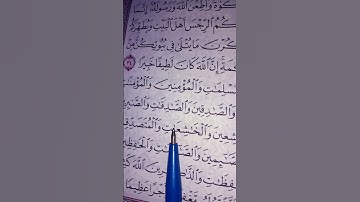 كَوٰةَ وَأَطِعْنَ ٱللَّهَ وَرَسُولَهُۥٓ إِنَّمَا
كُمُ ٱلرِّجْسَ أَهْلَ ٱلْبَيْتِ وَيُطَهِّرَكُ
كُرْنَ مَا يُتْلَىٰ فِى بُيُوتِكُنَّ مِنْ
مَةِ إِنَّ ٱللَّهَ كَانَ لَطِيفًا خَبِيرًا ٣٤
سْلِمَٰتِ وَٱلْمُؤْمِنِينَ وَٱلْمُؤْمِنَ
وَٱلصَّٰدِقِينَ وَٱلصَّٰدِقَٰتِ وَٱلصَّٰبِرِ
شِعِينَ وَٱلْخَٰشِعَٰتِ وَٱلْمُتَصَدِّقِ
ٰٓئِمِينَ وَٱلصَّٰٓئِمَٰتِ وَٱلْحَٰفِظِ
حَٰفِظَٰتِ وَٱلذَّٰكِرِينَ ٱللَّهَ كَ
مَّغْفِرَةً وَأَجْرًا عَظِيمًا